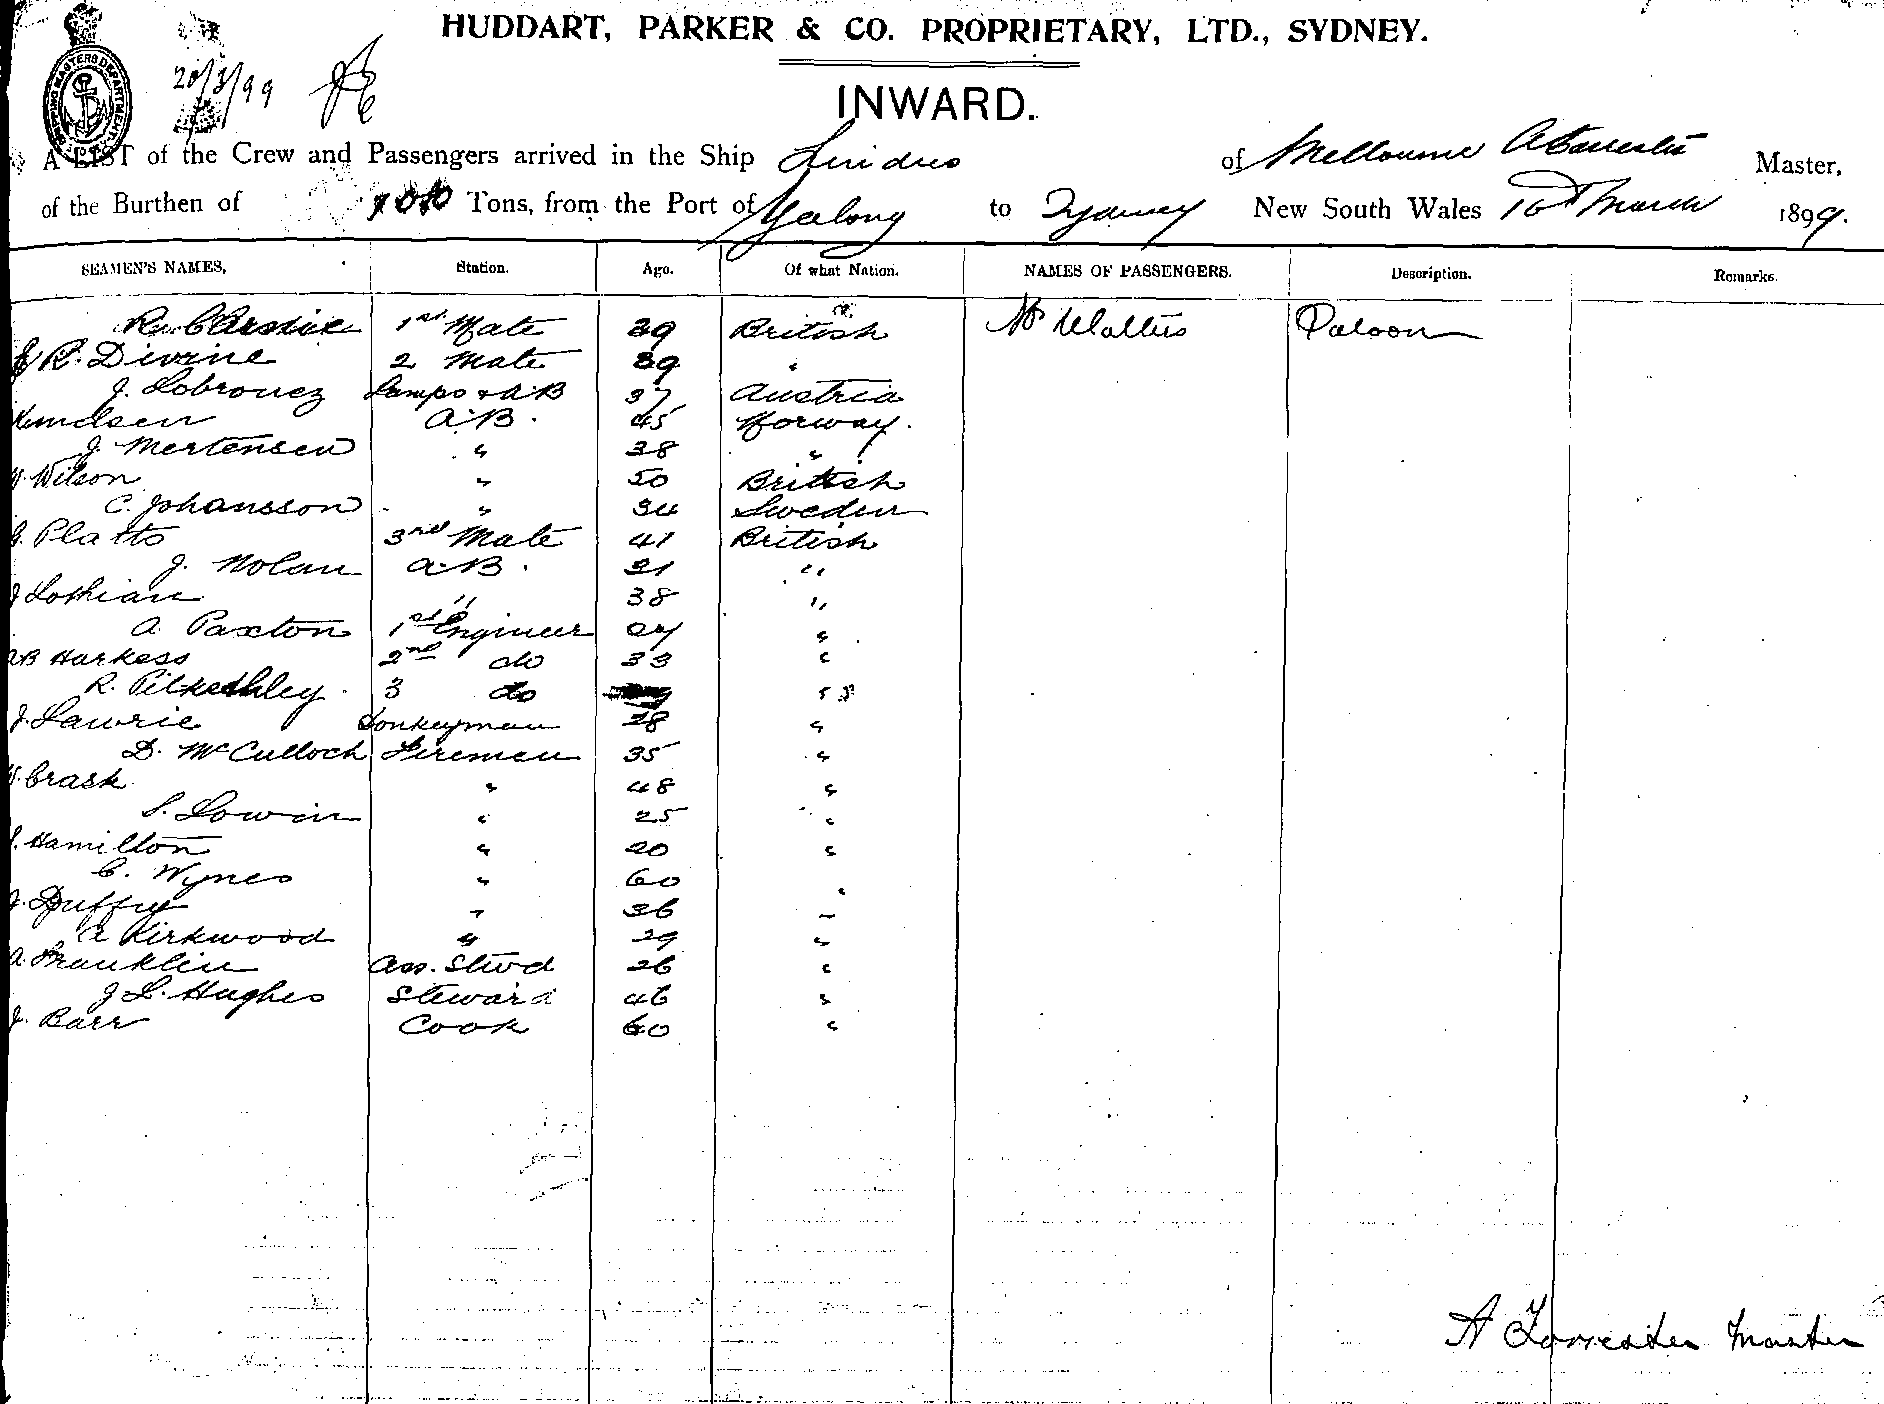 HUDDART, PARKER & CO. PROPRIETARY, LTD., SYDNEY.
20/3/99
INWARD.
SHIPPING MASTERS DEPARTMENT
A LIST of the Crew and Passengers arrived in the Ship of Melbourne Master,
of the Burthen of Tons, from the Port of Geelong to Sydney New South Wales 16th March 1899.
SEAMEN'S NAMES, Station. Age. Of what Nation. NAMES OF PASSENGERS. Description. Remarks.
1st Mate 39 British Mr Walters Saloon
R. Divine 2 Mate 39 "
J. Lobrovez Lamps & A.B 37 Austria
Knudsen A.B. 45 Norway.
J. Mertensen " 38 "
W. Wilson " 50 British
C. Johansson " 34 Sweden
G. Platts 3rd Mate 41 British
J. Nolan A.B. 21 "
J Lothian " 38 "
A. Paxton 1st Engineer "
AB Harkess 2nd do 33 "
R. 3 do "
J. Lawrie Donkeyman 28 "
D. McCulloch Firemen 35 "
W. Crask " 48 "
S. Lowin " 25 "
Hamilton " 20 "
C. Wynes " 60 "
J. Duffy " 36 "
A Kirkwood " 29 "
A. Franklin Ass. Stwd 26 "
J L. Hughes Steward 46 "
J. Barr Cook 60 "
A Forrester Master